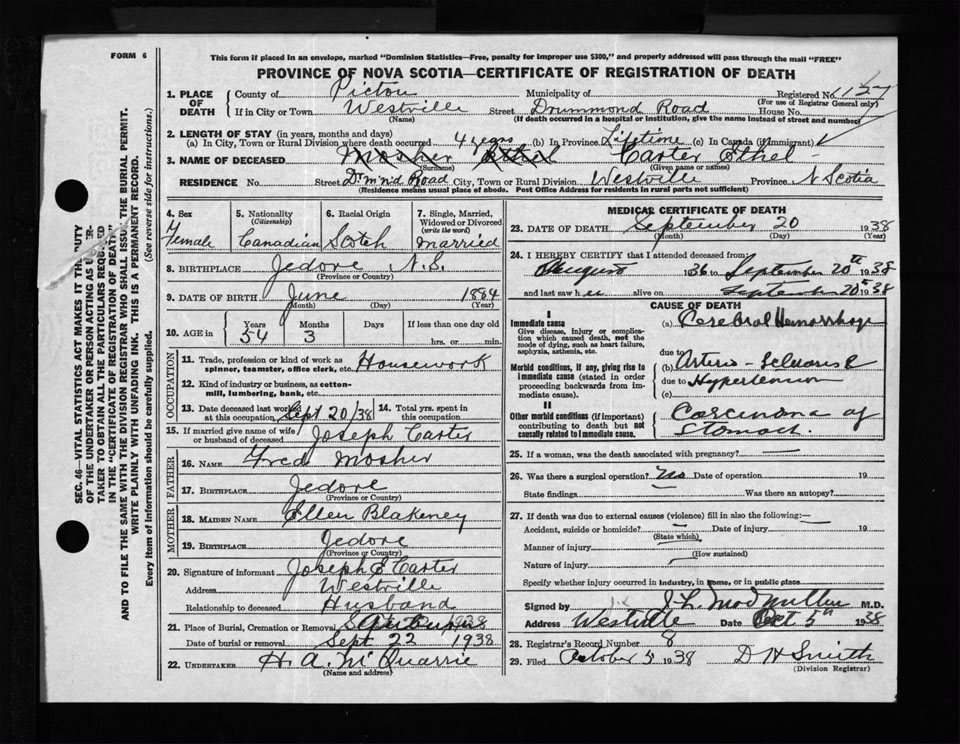 FORM 6
This form if placed in an envelope, marked "Dominion Statistics—Free, penalty for improper use $300," and properly addressed will pass through the mail "FREE"
PROVINCE OF NOVA SCOTIA—CERTIFICATE OF REGISTRATION OF DEATH
1. PLACE OF DEATH
County of Pictou Municipality of Registered No. 1127
(For use of Registrar General only)
If in City or Town Westville Street Drummond Road House No.
(Name) (If death occurred in a hospital or institution, give the name instead of street and number)
2. LENGTH OF STAY (in years, months and days)
(a) In City, Town or Rural Division where death occurred 4 years (b) In Province Lifetime (c) In Canada (if Immigrant)
3. NAME OF DECEASED Mosher Ethel Carter Ethel
(Surname) (Given name or names)
RESIDENCE No. Street Dr'm'n'd Road City, Town or Rural Division Westville Province N Scotia
(Residence means usual place of abode. Post Office Address for residents in rural parts not sufficient)
4. Sex Female
5. Nationality (Citizenship) Canadian
6. Racial Origin Scotch
7. Single, Married, Widowed or Divorced (write the word) Married
8. BIRTHPLACE Jedore N.S.
(Province or Country)
9. DATE OF BIRTH June 1884
(Month) (Day) (Year)
10. AGE in Years Months Days If less than one day old
54 3 hrs. or min.
OCCUPATION
11. Trade, profession or kind of work as spinner, teamster, office clerk, etc. Housework
12. Kind of industry or business, as cotton-mill, lumbering, bank, etc.
13. Date deceased last worked at this occupation Sept 20/38
14. Total yrs. spent in this occupation
15. If married give name of wife or husband of deceased Joseph Carter
FATHER
16. NAME Fred Mosher
17. BIRTHPLACE Jedore
(Province or Country)
MOTHER
18. MAIDEN NAME Ellen Blakeney
19. BIRTHPLACE Jedore
(Province or Country)
20. Signature of informant Joseph E Carter
Address Westville
Relationship to deceased Husband
21. Place of Burial, Cremation or Removal 1938
Date of burial or removal Sept 22 1938
22. UNDERTAKER H. A. McQuarrie
(Name and address)
MEDICAL CERTIFICATE OF DEATH
23. DATE OF DEATH September 20 1938
(Month) (Day) (Year)
24. I HEREBY CERTIFY that I attended deceased from
August 1936 to September 20th 1938
and last saw her alive on September 20th 1938
CAUSE OF DEATH
I
Immediate cause
Give disease, injury or complication which caused death, not the mode of dying, such as heart failure, asphyxia, asthenia, etc.
(a) Cerebral Hemorrhage
due to
Morbid conditions, if any, giving rise to immediate cause (stated in order proceeding backwards from immediate cause).
(b) Arterio-Sclerosis &
due to Hypertension
(c)
II
Other morbid conditions (if important) contributing to death but not causally related to immediate cause.
Carcinoma of
Stomach.
25. If a woman, was the death associated with pregnancy?
26. Was there a surgical operation? No Date of operation 19
State findings Was there an autopsy?
27. If death was due to external causes (violence) fill in also the following:
Accident, suicide or homicide? Date of injury 19
(State which)
Manner of injury
(How sustained)
Nature of injury
Specify whether injury occurred in industry, in home, or in public place
Signed by M.D.
Address Westville Date Oct 5th 1938
28. Registrar's Record Number 8
29. Filed October 5 1938 D H Smith
(Division Registrar)
SEC. 46—VITAL STATISTICS ACT MAKES IT THE DUTY
OF THE UNDERTAKER OR PERSON ACTING AS
TAKER TO OBTAIN ALL THE PARTICULARS REQUIRED
IN THE "CERTIFICATE OF REGISTRATION OF DEATH"
AND TO FILE THE SAME WITH THE DIVISION REGISTRAR WHO SHALL ISSUE THE BURIAL PERMIT.
WRITE PLAINLY WITH UNFADING INK. THIS IS A PERMANENT RECORD.
Every item of information should be carefully supplied. (See reverse side for instructions.)